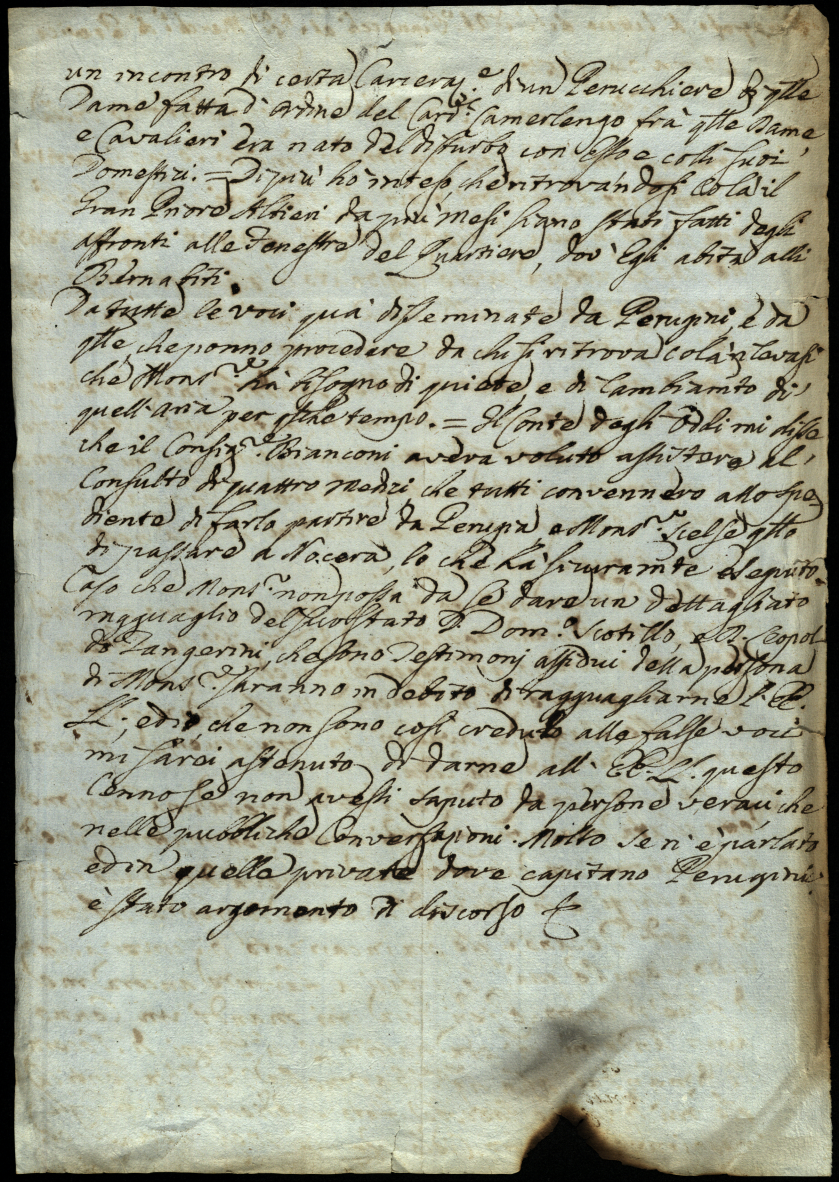 un incontro di certa Carceraz.e di un Perucchiere di q.lle
Dame fatta d'ordine del Card.l Camerlengo frà q.lle Dame,
e Cavalieri era nato del disturbo con Esso e colli suoi
Domestici. = Di più hò inteso, che ritrovandosi Colà il
Gran Priore Altieri da più mesi siano stati fatti degli
affronti alle fenestre del Quartiere, dov'Egli abita alli
Bernabiti.
Da tutte le voci quà disseminate da Perugini, e da
q.lle, che ponno procedere da chi si ritrova colà rilevasi
che Mons.re hà bisogno di quiete, e di Cambiam.to di
quell'aria per q.lche tempo. = Il Conte degli Oddi mi disse
che il Consig.re Bianconi aveva voluto assistere al
Consulto di quattro Medici, che tutti convennero allo spe=
diente di farlo partire da Perugia, e Mons.re scelse q.llo
di passare a Nocera, lo che hà sicuram.te eseguito.
Caso che Mons.re non possa da se dare un dettagliato
ragguaglio del suo stato D. Dom.o Scotillo, e D. Leopol=
do Tangerini, che sono Testimonj assidui della persona
di Mons.re saranno in debito di ragguagliarne l'EE.
LL., ed io, che non sono così credulo alle false voci
mi sarei astenuto di darne all'EE. LL. questo
Cenno se non avessi saputo da persone veraci, che
nelle pubbliche Conversazioni. Molto se n'è parlato
ed in quelle private dove capitano Perugini
è stato argomento di discorso